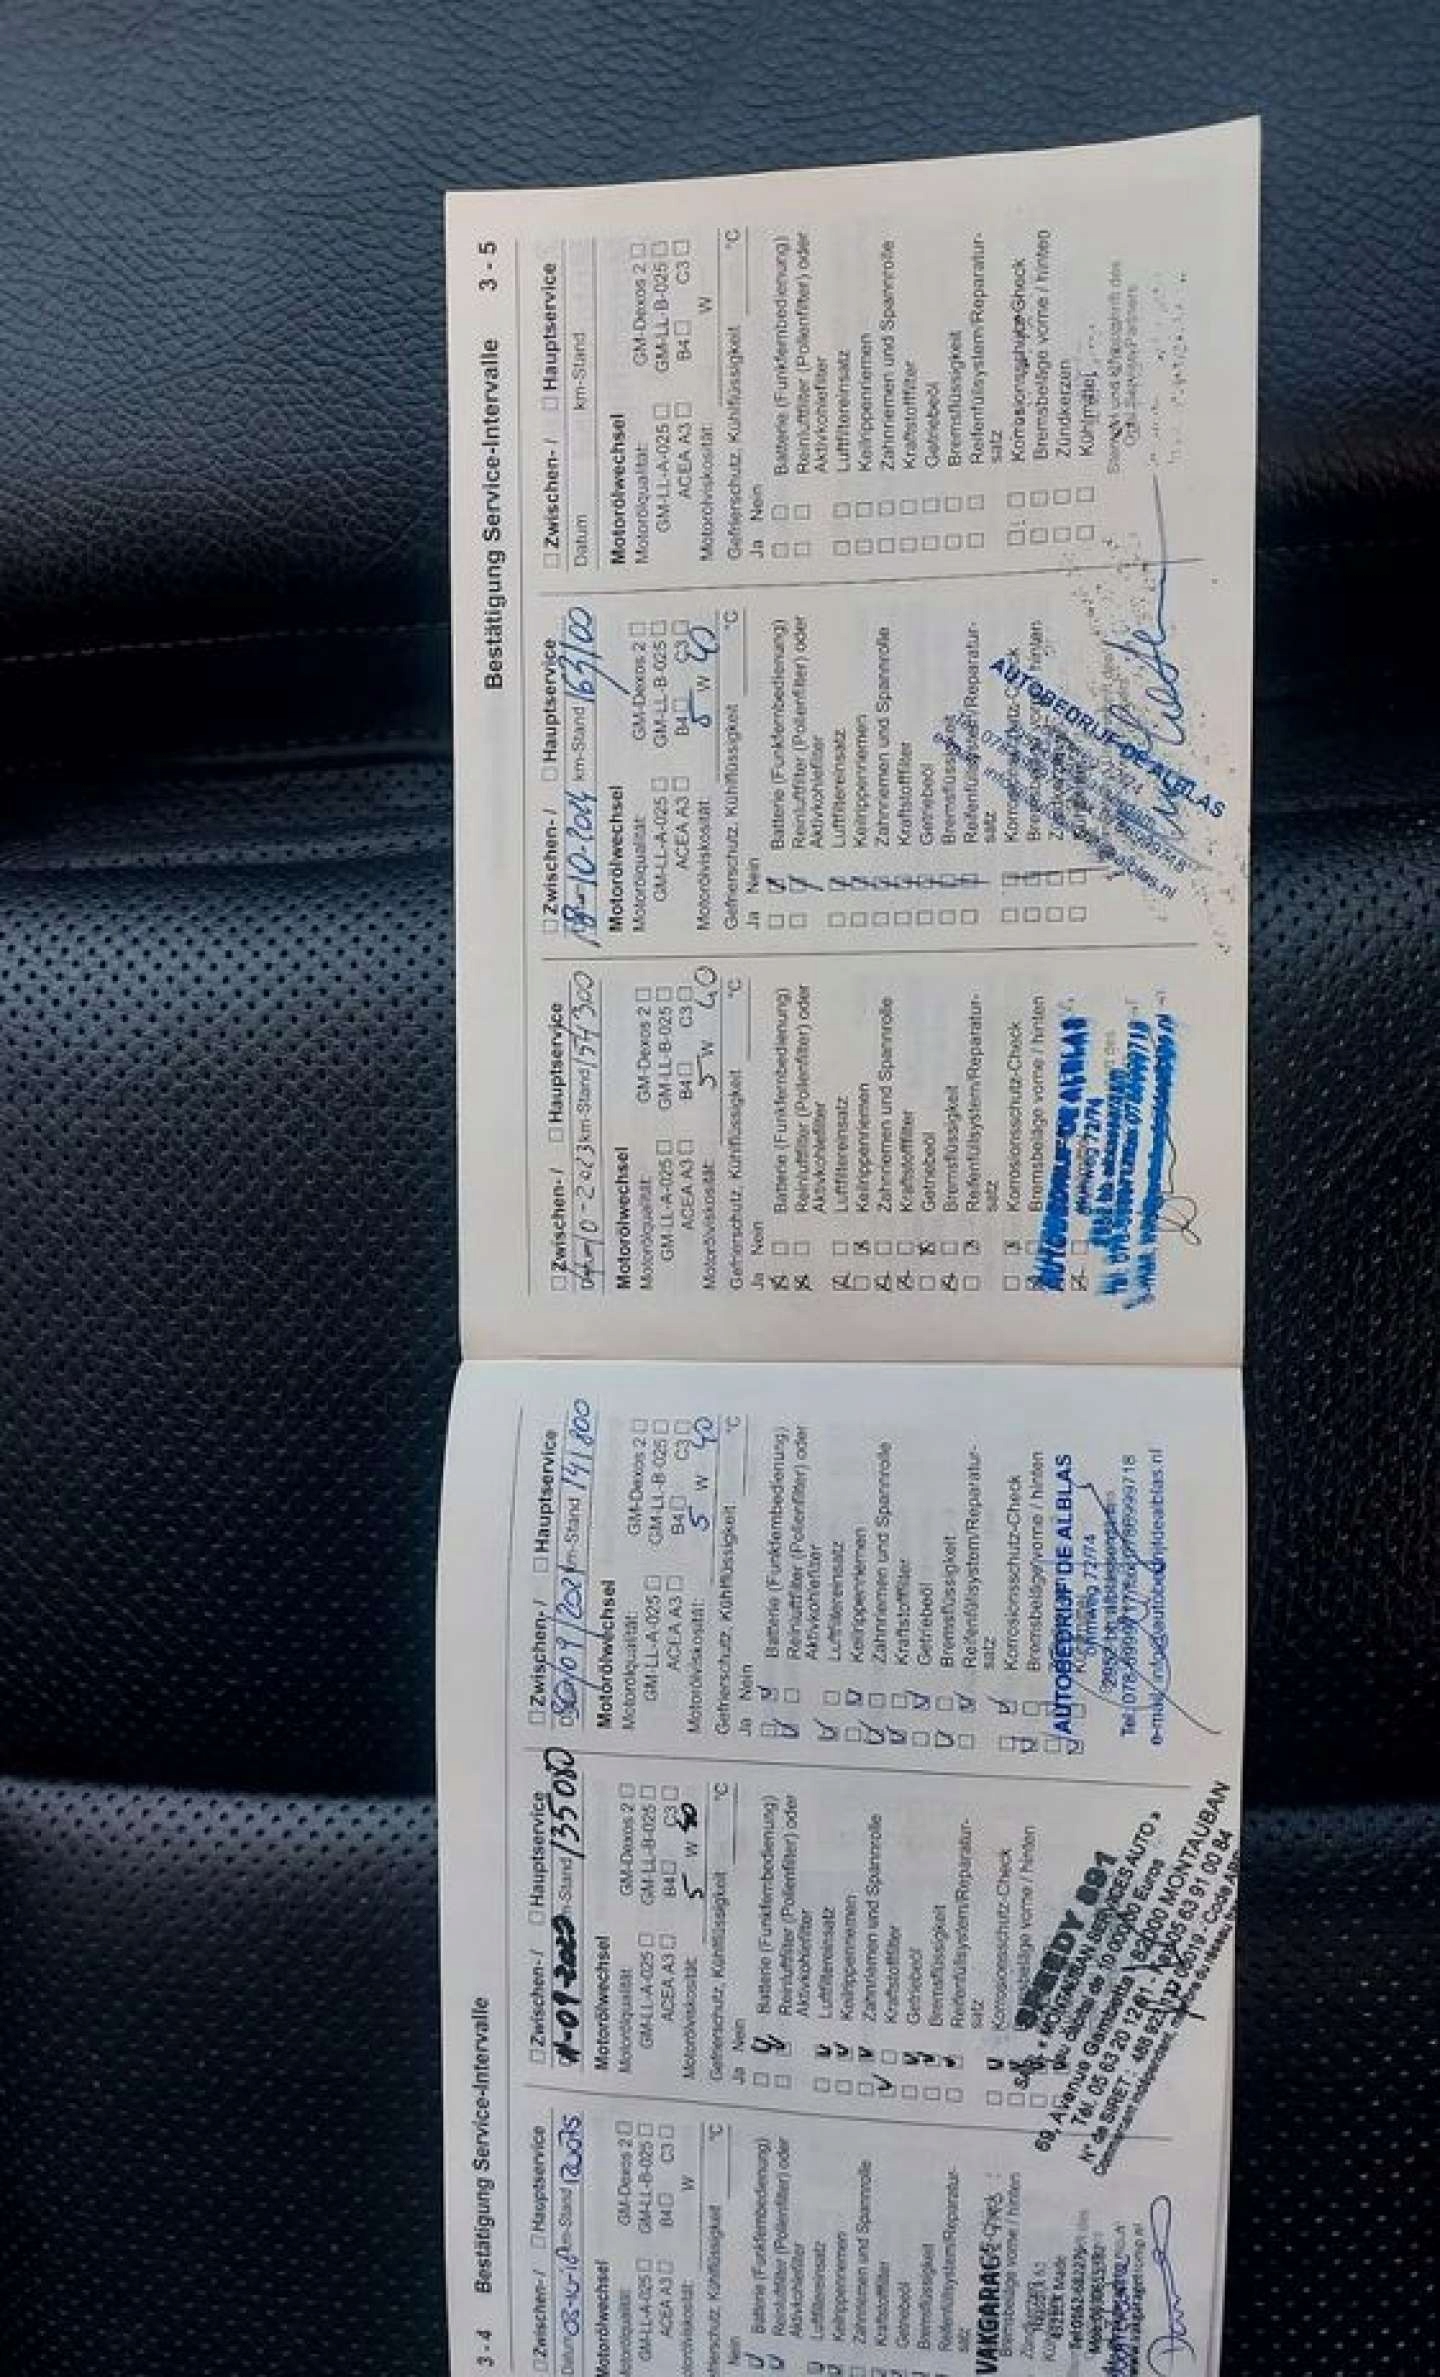 3 - 4 Bestätigung Service-Intervalle
□ Zwischen- / □ Hauptservice
Datum km-Stand
Motorölwechsel
Motorölqualität: GM-Dexos 2 □
GM-LL-A-025 □ GM-LL-B-025 □
ACEA A3 □ B4 □ C3 □
Motorölviskosität: W
Gefrierschutz, Kühlflüssigkeit °C
Nein
Batterie (Funkfernbedienung)
Reinluftfilter (Pollenfilter) oder
Aktivkohlefilter
Luftfiltereinsatz
Keilrippenriemen
Zahnriemen und Spannrolle
Kraftstofffilter
Getriebeöl
Bremsflüssigkeit
Reifenfüllsystem/Reparatur-
satz
VAKGARAGE
Bremsbeläge vorne / hinten
Made
□ Zwischen- / □ Hauptservice
-09-2020 km-Stand 135080
Motorölwechsel
Motorölqualität: GM-Dexos 2 □
GM-LL-A-025 □ GM-LL-B-025 □
ACEA A3 □ B4 □ C3 □
Motorölviskosität: 5 W 40
Gefrierschutz, Kühlflüssigkeit °C
Ja Nein
Batterie (Funkfernbedienung)
Reinluftfilter (Pollenfilter) oder
Aktivkohlefilter
Luftfiltereinsatz
Keilrippenriemen
Zahnriemen und Spannrolle
Kraftstofffilter
Getriebeöl
Bremsflüssigkeit
Reifenfüllsystem/Reparatur-
satz
Korrosionsschutz-Check
vorne / hinten
SPEEDY 891
« MONTAUBAN SERVICES AUTO »
au capital de 10 000,00 Euros
69, Avenue Gambetta 82000 MONTAUBAN
Tél. 05 63 20 12 61 - Fax 05 63 91 00 84
N° de SIRET : 488 923
Commerçant indépendant, membre du réseau
□ Zwischen- / □ Hauptservice
/09/2021 km-Stand 141800
Motorölwechsel
Motorölqualität: GM-Dexos 2 □
GM-LL-A-025 □ GM-LL-B-025 □
ACEA A3 □ B4 □ C3 □
Motorölviskosität: 5 W 40
Gefrierschutz, Kühlflüssigkeit °C
Ja Nein
Batterie (Funkfernbedienung)
Reinluftfilter (Pollenfilter) oder
Aktivkohlefilter
Luftfiltereinsatz
Keilrippenriemen
Zahnriemen und Spannrolle
Kraftstofffilter
Getriebeöl
Bremsflüssigkeit
Reifenfüllsystem/Reparatur-
satz
Korrosionsschutz-Check
Bremsbeläge vorne / hinten
AUTOBEDRIJF DE ALBLAS
72/74
e-mail: info@autobedrijfdealblas.nl
Bestätigung Service-Intervalle 3 - 5
□ Zwischen- / □ Hauptservice
-10-2023 km-Stand 154300
Motorölwechsel
Motorölqualität: GM-Dexos 2 □
GM-LL-A-025 □ GM-LL-B-025 □
ACEA A3 □ B4 □ C3 □
Motorölviskosität: 5 W 40
Gefrierschutz, Kühlflüssigkeit °C
Ja Nein
Batterie (Funkfernbedienung)
Reinluftfilter (Pollenfilter) oder
Aktivkohlefilter
Luftfiltereinsatz
Keilrippenriemen
Zahnriemen und Spannrolle
Kraftstofffilter
Getriebeöl
Bremsflüssigkeit
Reifenfüllsystem/Reparatur-
satz
Korrosionsschutz-Check
Bremsbeläge vorne / hinten
AUTOBEDRIJF DE ALBLAS
72/74
□ Zwischen- / □ Hauptservice
-10-2024 km-Stand 163100
Motorölwechsel
Motorölqualität: GM-Dexos 2 □
GM-LL-A-025 □ GM-LL-B-025 □
ACEA A3 □ B4 □ C3 □
Motorölviskosität: 5 W 40
Gefrierschutz, Kühlflüssigkeit °C
Ja Nein
Batterie (Funkfernbedienung)
Reinluftfilter (Pollenfilter) oder
Aktivkohlefilter
Luftfiltereinsatz
Keilrippenriemen
Zahnriemen und Spannrolle
Kraftstofffilter
Getriebeöl
Bremsflüssigkeit
Reifenfüllsystem/Reparatur-
satz
AUTOBEDRIJF DE ALBLAS
□ Zwischen- / □ Hauptservice
Datum km-Stand
Motorölwechsel
Motorölqualität: GM-Dexos 2 □
GM-LL-A-025 □ GM-LL-B-025 □
ACEA A3 □ B4 □ C3 □
Motorölviskosität: W
Gefrierschutz, Kühlflüssigkeit °C
Ja Nein
□ □ Batterie (Funkfernbedienung)
□ □ Reinluftfilter (Pollenfilter) oder
Aktivkohlefilter
□ □ Luftfiltereinsatz
□ □ Keilrippenriemen
□ □ Zahnriemen und Spannrolle
□ □ Kraftstofffilter
□ □ Getriebeöl
□ □ Bremsflüssigkeit
□ □ Reifenfüllsystem/Reparatur-
satz
□ □ Korrosionsschutz-Check
□ □ Bremsbeläge vorne / hinten
□ □ Zündkerzen
□ □ Kühlmittel